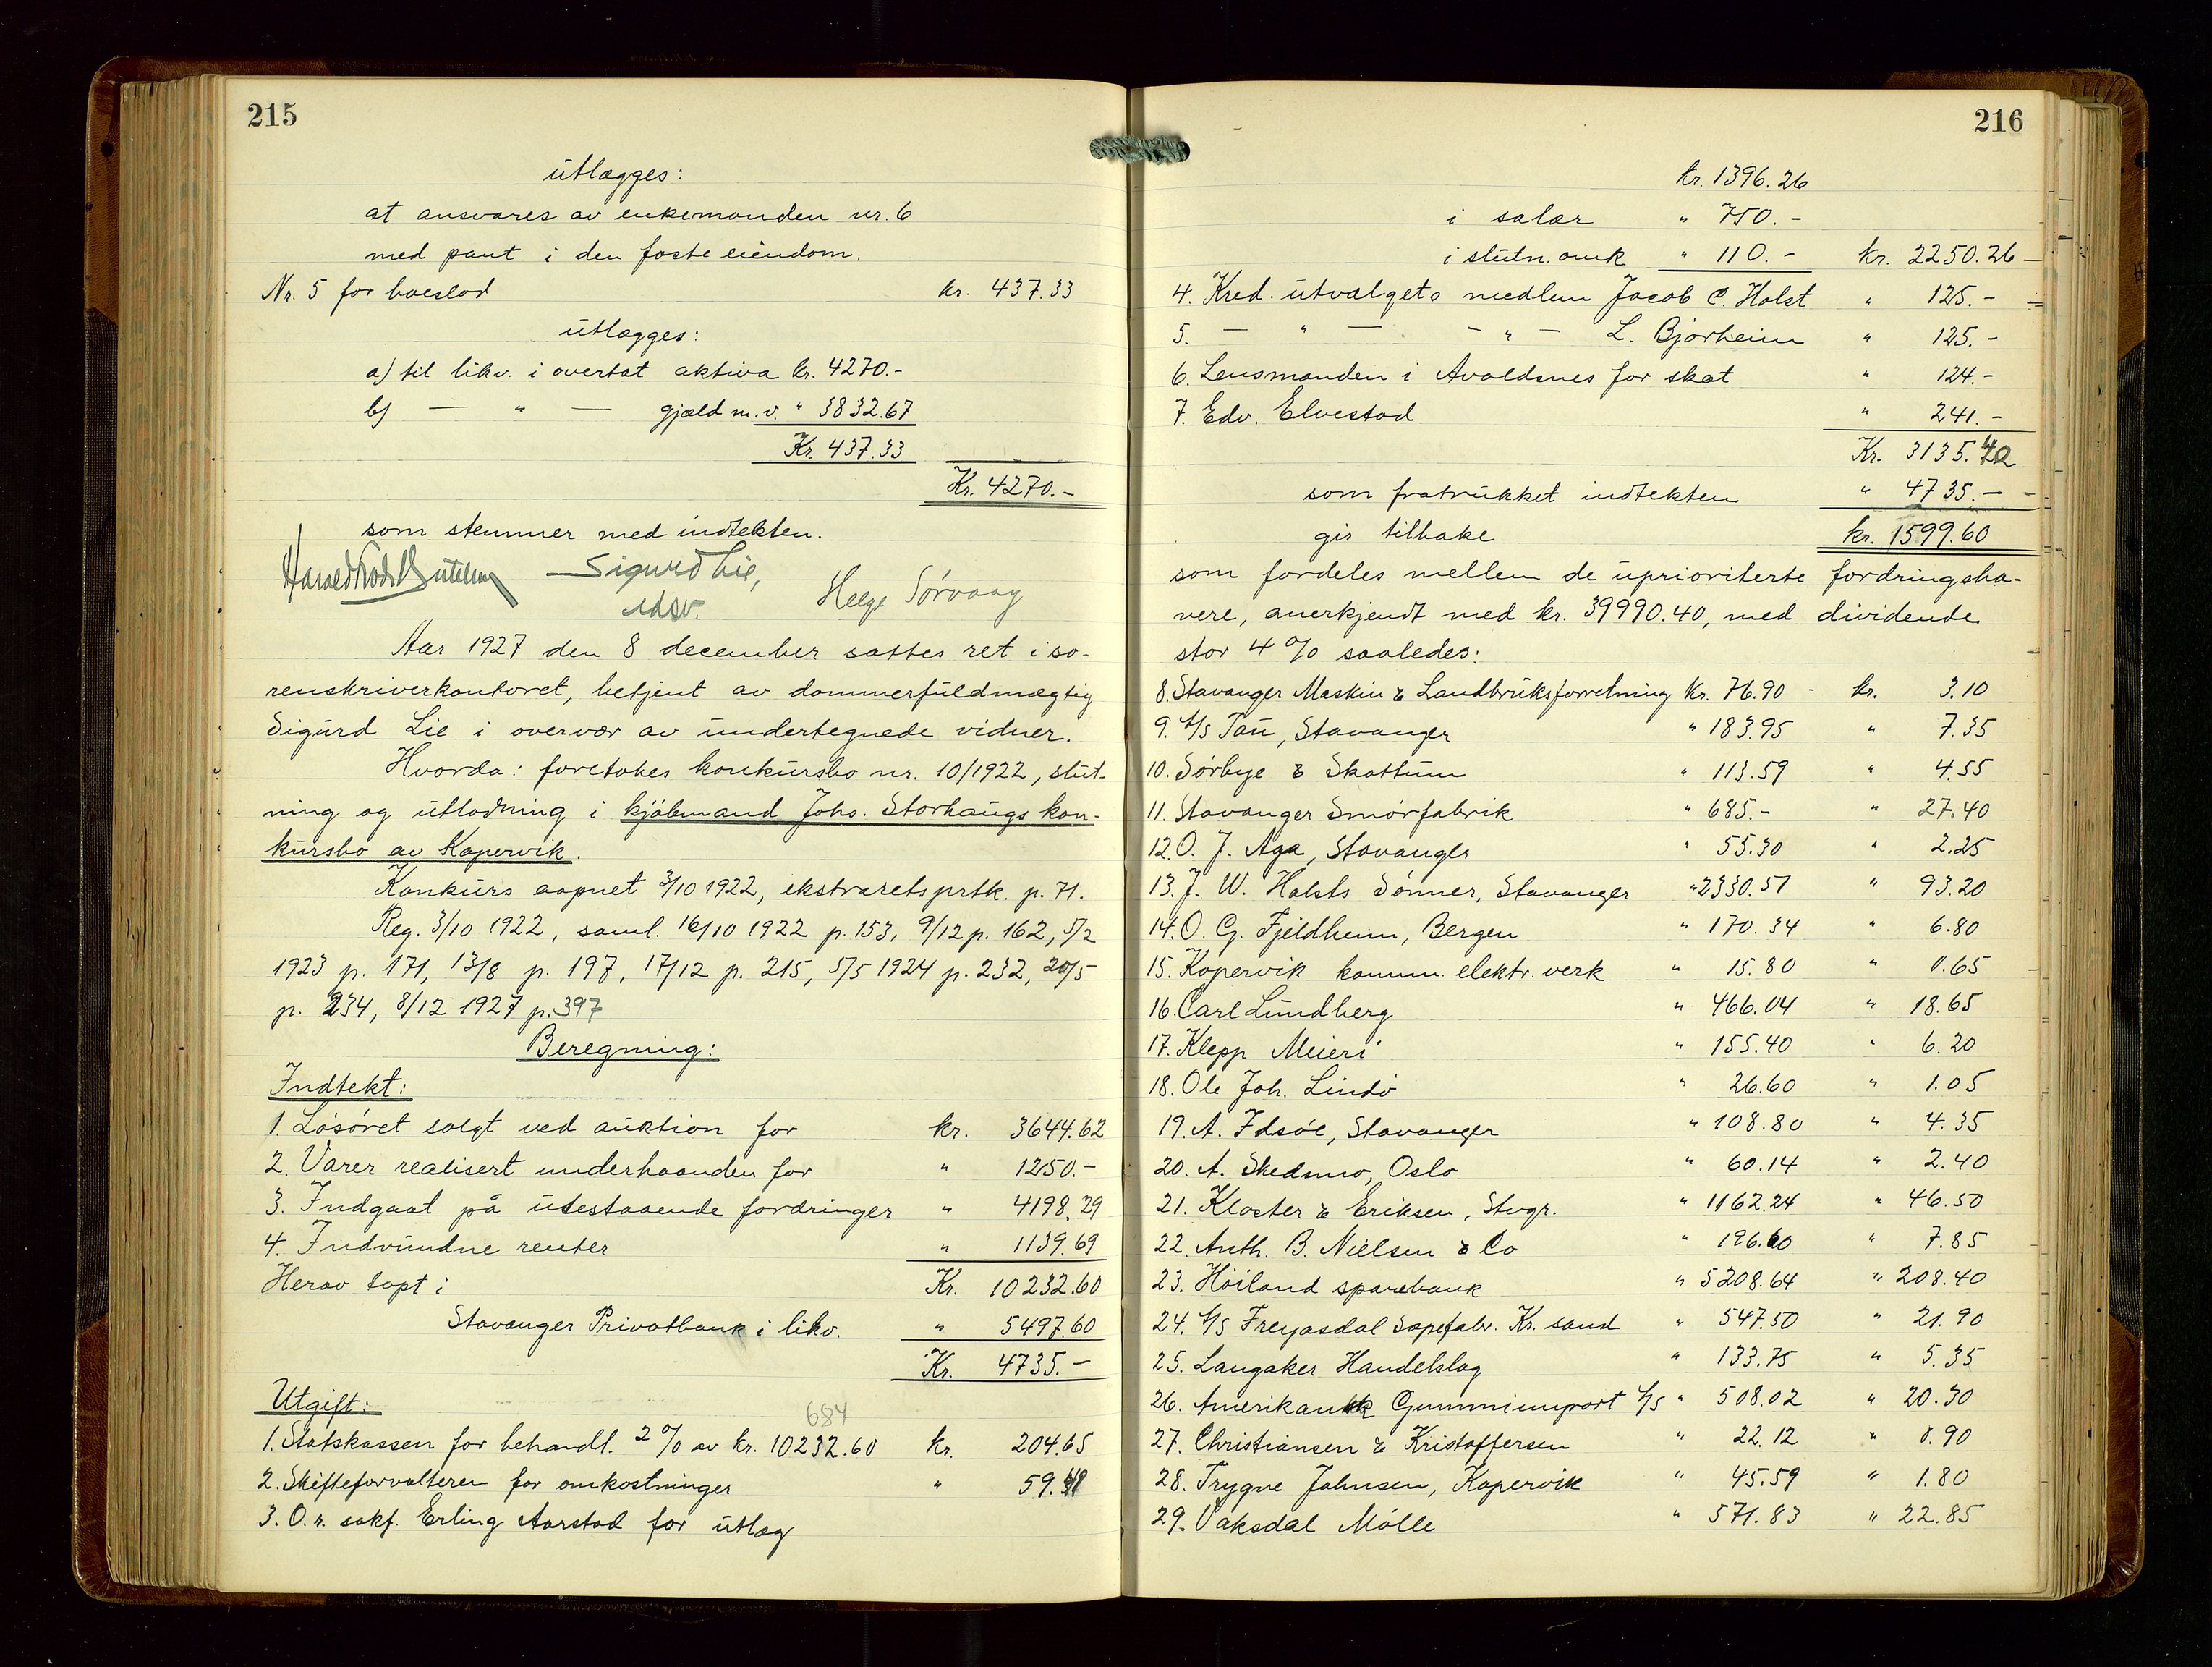 215
utlægges:
at ansvares av enkemanden nr. 6
med pant i den faste eiendom.
Nr. 5 for boeslod kr. 437.33
utlægges:
a) til likv. i overtat aktiva kr. 4270.-
b) — " — gjæld m.v. " 3832.67
Kr. 437.33
Kr. 4270.-
som stemmer med indtekten.
Sigurd Lie, Helge Sørvaag
edsv.
Aar 1927 den 8 december sattes ret i so-
renskriverkontoret, betjent av dommerfuldmægtig
Sigurd Lie i overvær av undertegnede vidner.
Hvorda: foretokes konkursbo nr. 10/1922, slut-
ning og utlodning i kjøbmand Johs. Storhaugs kon-
kursbo av Kopervik.
Konkurs aapnet 3/10 1922, ekstraretsprtk. p. 71.
Reg. 3/10 1922, saml. 16/10 1922 p. 153, 9/12 p. 162, 5/2
1923 p. 171, 13/8 p. 197, 17/12 p. 215, 5/5 1924 p. 232, 20/5
p. 234, 8/12 1927 p. 397
Beregning:
Indtekt:
1. Løsøret solgt ved auktion for kr. 3644.62
2. Varer realisert underhaanden for " 1250.-
3. Indgaat på utestaaende fordringer " 4198.29
4. Indvundne renter " 1139.69
Herav tapt i Kr. 10232.60
Stavanger Privatbank i likv. " 5497.60
Kr. 4735.-
Utgift:
684
1. Statskassen for behandl. 2% av kr. 10232.60 kr. 204.65
2. Skifteforvalteren for omkostninger " 59.
3. O.r. sakf. Erling Aarstad for utlæg
216
kr. 1396.26
i salær " 750.-
i slutn. omk " 110.- kr. 2250.26
4. Kred. utvalgets medlem Jacob C. Holst " 125.-
5. — " — — " — L. Bjorheim " 125.-
6. Lensmanden i Avaldsnes for skat " 124.-
7. Edv. Elvestad " 241.-
Kr. 3135.40
som fratrukket indtekten " 4735.-
gir tilbake kr. 1599.60
som fordeles mellem de uprioriterte fordringsha-
vere, anerkjendt med kr. 39990.40, med dividende
stor 4% saaledes:
8. Stavanger Maskin & Landbruksforretning Kr. 76.90 - kr. 3.10
9. A/S Tau, Stavanger " 183.95 " 7.35
10. Sørbye & Skattum " 113.59 " 4.55
11. Stavanger Smørfabrik " 685.- " 27.40
12. O. J. Aga, Stavanger " 55.30 " 2.25
13. J. W. Holsts Sønner, Stavanger " 2330.57 " 93.20
14. O. G. Fjeldheim, Bergen " 170.34 " 6.80
15. Kopervik komm. elektr. verk " 15.80 " 0.65
16. Carl Lundberg " 466.04 " 18.65
17. Klepp Meieri " 155.40 " 6.20
18. Ole Joh. Lindø " 26.60 " 1.05
19. A. Idsøe, Stavanger " 108.80 " 4.35
20. A. Skedsmo, Oslo " 60.14 " 2.40
21. Kloster & Eriksen, Stvgr. " 1162.24 " 46.50
22. Anth. B. Nielsen & Co " 196.60 " 7.85
23. Høiland sparebank " 5208.64 " 208.40
24. A/S Freyasdal Sæpefabr. Kr. sand " 547.50 " 21.90
25. Langaker Handelslag " 133.75 " 5.35
26. Amerikansk Gummiimport A/S " 508.02 " 20.30
27. Christiansen & Kristoffersen " 22.12 " 0.90
28. Trygve Johnsen, Kopervik " 45.59 " 1.80
29. Vaksdal Mølle " 571.83 " 22.85